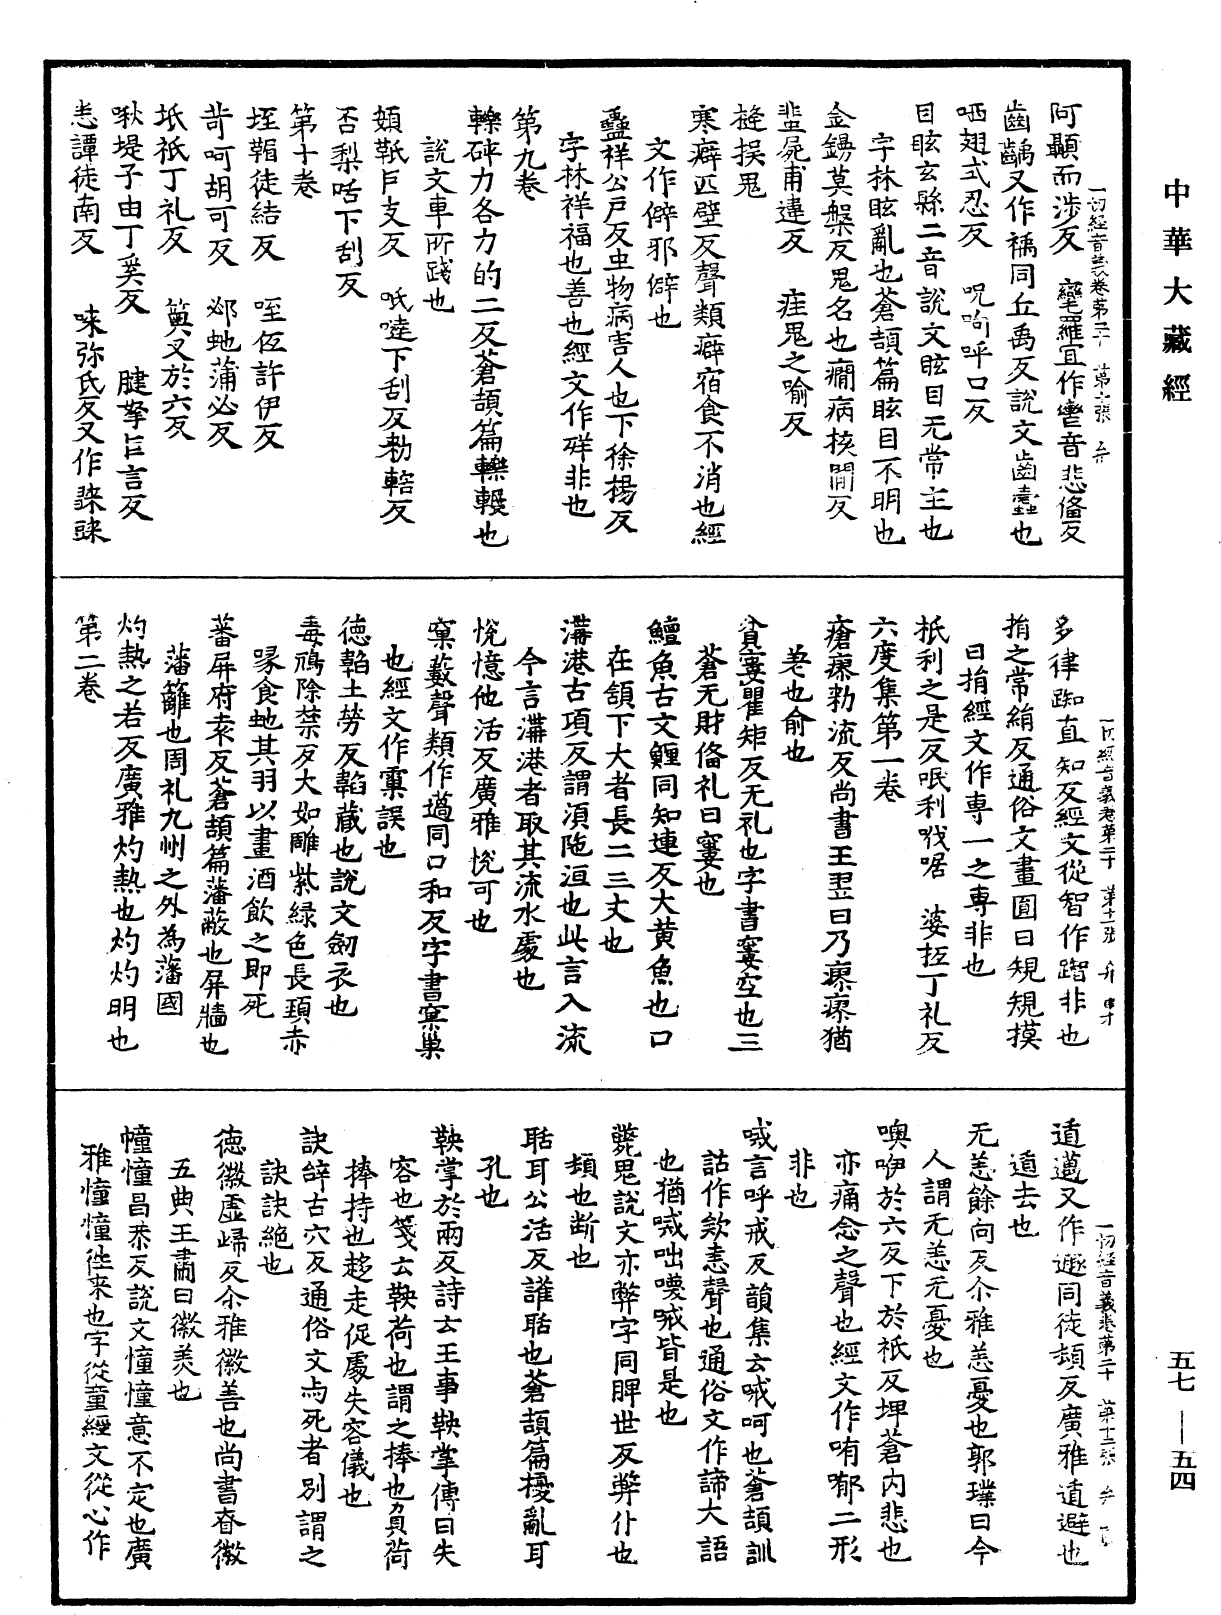 中華大藏經
一切經音義卷第二十　第十張　弁
阿顳而涉反　㝈羅宜作轡音悲俻反
齒齲又作䄜同丘禹反說文齒蠹也
哂翅式忍反　呪呴呼口反
目眩玄縣二音說文眩目无常主也
字林眩亂也蒼頡篇眩目不明也
金錫莫槃反鬼名也癇病核閒反
蜚屍甫違反　疰鬼之喻反
㨕捑鬼
寒癖匹壁反聲類癖宿食不消也經
文作僻邪僻也
蠱祥公戶反虫物病害人也下徐楊反
字林祥福也善也經文作䍧非也
第九卷
轢硶力各力的二反蒼頡篇轢輾也
說文車所踐也
頞䩗巨支反　呧噠下刮反勑轄反
否梨咶下刮反
第十卷
垤䩞徒結反　咥伭許伊反
㱔呵胡可反　邲虵蒲必反
坁祇丁礼反　䔬叉於六反
啾堤子由丁奚反　腱拏巨言反
恚譚徒南反　㖿弥氏反又作䛾䛾
多律踟直知反經文從智作䠦非也
捐之常絹反通俗文畫圓曰規規摸
曰捐經文作専一之専非也
抵利之是反呡利哦啹　婆抵丁礼反
六度集第一卷
瘡瘳勑流反尚書王翌日乃瘳瘳猶
差也愈也
貧窶瞿矩反无礼也字書窶空也三
蒼无財俻礼曰窶也
鱣魚古文鱓同知連反大黃魚也口
在頷下大者長二三丈也
溝港古項反謂須陁洹也此言入流
今言溝港者取其流水處也
悅憶他活反廣雅悅可也
窠藪聲類作薖同口和反字書窠巢
也經文作䆃誤也
德韜土勞反韜藏也說文劒衣也
毒鴆除禁反大如雕紫綠色長頸赤
喙食虵其羽以畫酒飲之即死
蕃屏府袁反蒼頡篇藩蔽也屏牆也
藩籬也周礼九州之外為藩國
灼熱之若反廣雅灼熱也灼灼明也
第二卷
遁邁又作遯同徒頓反廣雅遁避也
遁去也
无恙餘向反尒雅恙憂也郭璞曰今
人謂无恙无憂也
噢咿於六反下於祇反埤蒼內悲也
亦痛念之聲也經文作喐㖠二形
非也
喊言呼戒反韻集云喊呵也蒼頡訓
詁作欸恚聲也通俗文作諦大語
也猶喊咄㗻喊皆是也
斃鬼說文亦弊字同脾世反斃仆也
頓也断也
聒耳公活反讙聒也蒼頡篇擾亂耳
孔也
鞅掌於兩反詩云王事鞅掌傳曰失
容也箋云鞅荷也謂之捧也負荷
捧持也趍走促處失容儀也
訣辭古穴反通俗文与死者別謂之
訣訣絕也
德徽虛歸反尒雅徽善也尚書昚徽
五典王肅曰徽美也
憧憧昌恭反說文憧憧意不定也廣
雅憧憧徃来也字從童經文從心作
五七－五四